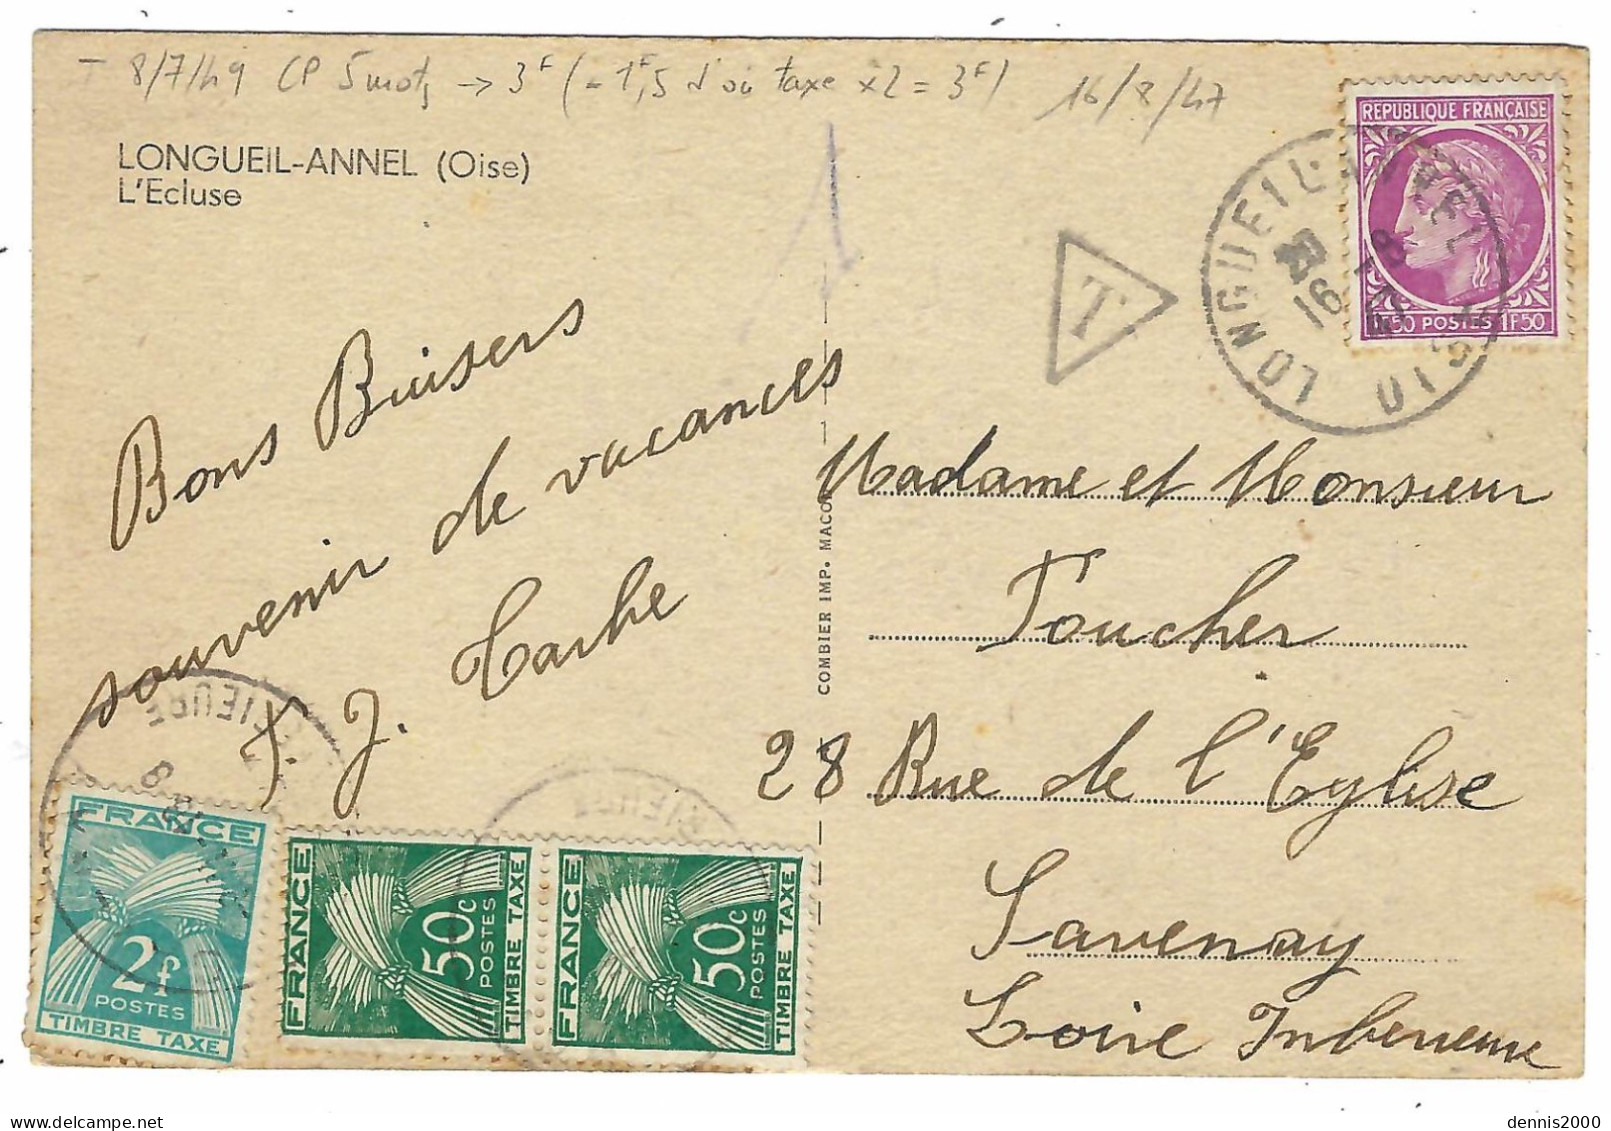 T 8/7/49 CP 5 mots → 3F (-1F,5 d'où taxe x2 = 3F) 16/8/47
LONGUEIL-ANNEL (Oise)
L'Ecluse
REPUBLIQUE FRANÇAISE
1F50 POSTES 1F50
LONGUEIL-ANNEL
OISE
16
8
T
Bons Baisers
souvenir de vacances
J. Tache
COMBIER IMP. MACON
Madame et Monsieur
Foucher
28 Rue de l'Eglise
Savenay
Loire Inferieure
FRANCE
2f
POSTES
TIMBRE TAXE
FRANCE
50c
POSTES
TIMBRE TAXE
FRANCE
50c
POSTES
TIMBRE TAXE
dennis2000